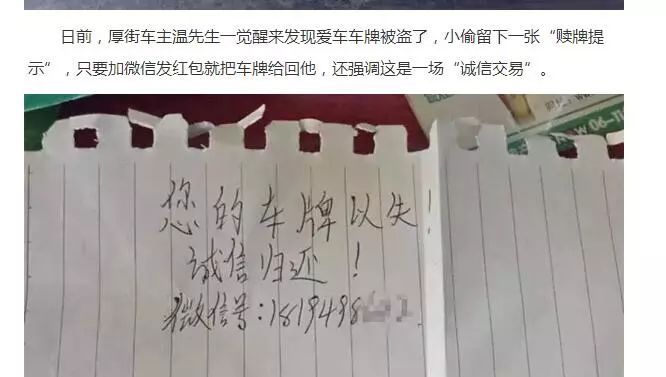 日前，厚街车主温先生一觉醒来发现爱车车牌被盗了，小偷留下一张“赎牌提
示”，只要加微信发红包就把车牌给回他，还强调这是一场“诚信交易”。
您的车牌以失！
诚信归还！
微信号：1819498